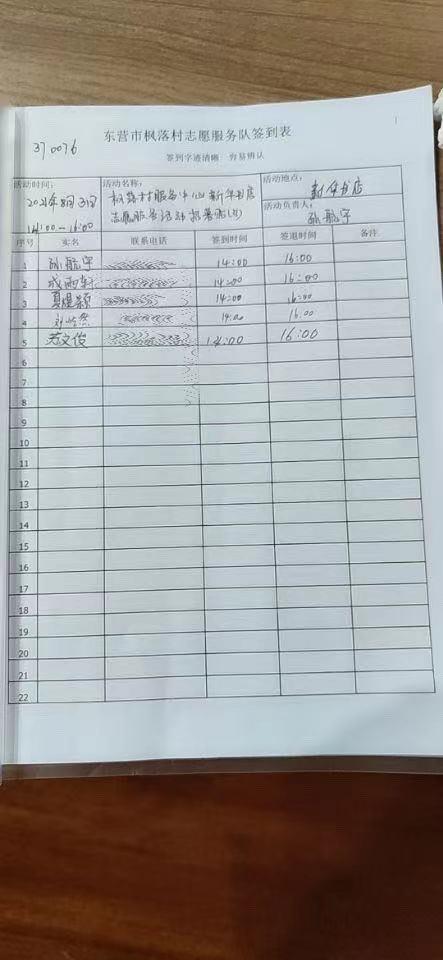 东营市枫落村志愿服务队签到表
370076
签到字迹清晰 容易辨认
活动时间:
14:00-16:00
活动名称:
枫落村服务中心新华书店
志愿服务活动
活动地点:
新华书店
活动负责人:
孙航宇
序号 实名 联系电话 签到时间 签退时间 备注
1 孙航宇 14:00 16:00
2 成雨轩 14:00 16:00
3 14:00 16:00
4 14:00 16:00
5 14:00 16:00
6
7
8
9
10
11
12
13
14
15
16
17
18
19
20
21
22